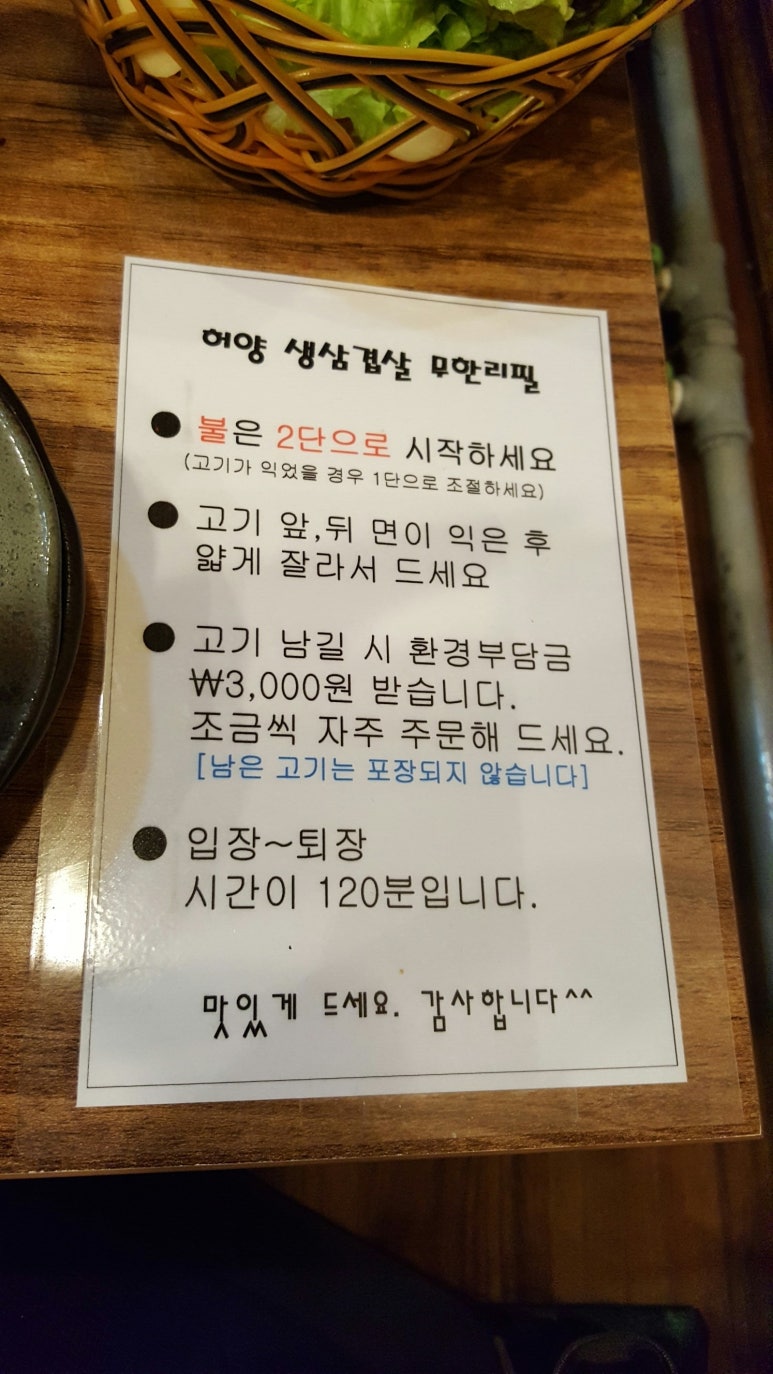 허양 생삼겹살 무한리필
● 불은 2단으로 시작하세요
(고기가 익었을 경우 1단으로 조절하세요)
● 고기 앞,뒤 면이 익은 후
얇게 잘라서 드세요
● 고기 남길 시 환경부담금
₩3,000원 받습니다.
조금씩 자주 주문해 드세요.
[남은 고기는 포장되지 않습니다]
● 입장~퇴장
시간이 120분입니다.
맛있게 드세요. 감사합니다^^